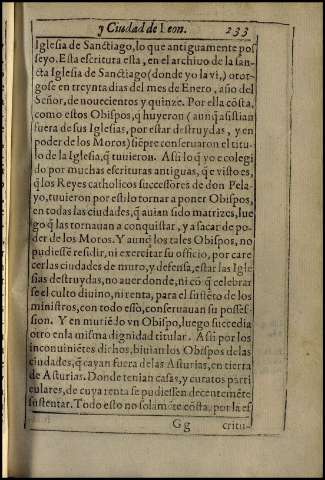 y Ciudad de Leon. 233
Iglesia de Sanctiago, lo que antiguamente pos-
seyo. Esta escritura esta, en el archiuo de la san-
cta Iglesia de Sanctiago (donde yo la vi,) otor-
gose en treynta dias del mes de Enero, año del
Señor, de nouecientos y quinze. Por ella cõsta,
como estos Obispos, q̃ huyeron (aunq̃ assistian
fuera de sus Iglesias, por estar destruydas, y en
poder de los Moros) siẽpre conseruaron el titu-
lo de la Iglesia, q̃ tuuieron. Assi lo q̃ yo e colegi
do por muchas escrituras antiguas, que visto es,
q̃ los Reyes catholicos successores de don Pela-
yo, tuuieron por estilo tornar a poner Obispos,
en todas las ciudades, q̃ auian sido matrizes, lue
go q̃ las tornauan a conquistar, y a sacar de po-
der de los Moros. Y aunq̃ los tales Obispos, no
pudiessẽ residir, ni exercitar su officio, por care
cer las ciudades de muro, y defensa, estar las Igle
sias destruydas, no auer donde, ni cõ q̃ celebrar
se el culto diuino, ni renta, para el sustẽto de los
ministros, con todo esso, conseruauan su posses-
sion. Y en muriẽdo vn Obispo, luego succedia
otro en la misma dignidad titular. Assi por los
inconuiniẽtes dichos, biuian los Obispos de las
ciudades, q̃ cayan fuera de las Asturias, en tierra
de Asturias. Donde tenian casas, y curatos parti
culares, de cuya renta se pudiessen decentemẽte
sustentar. Todo esto no solamẽte cõsta, por la es
Gg critu-